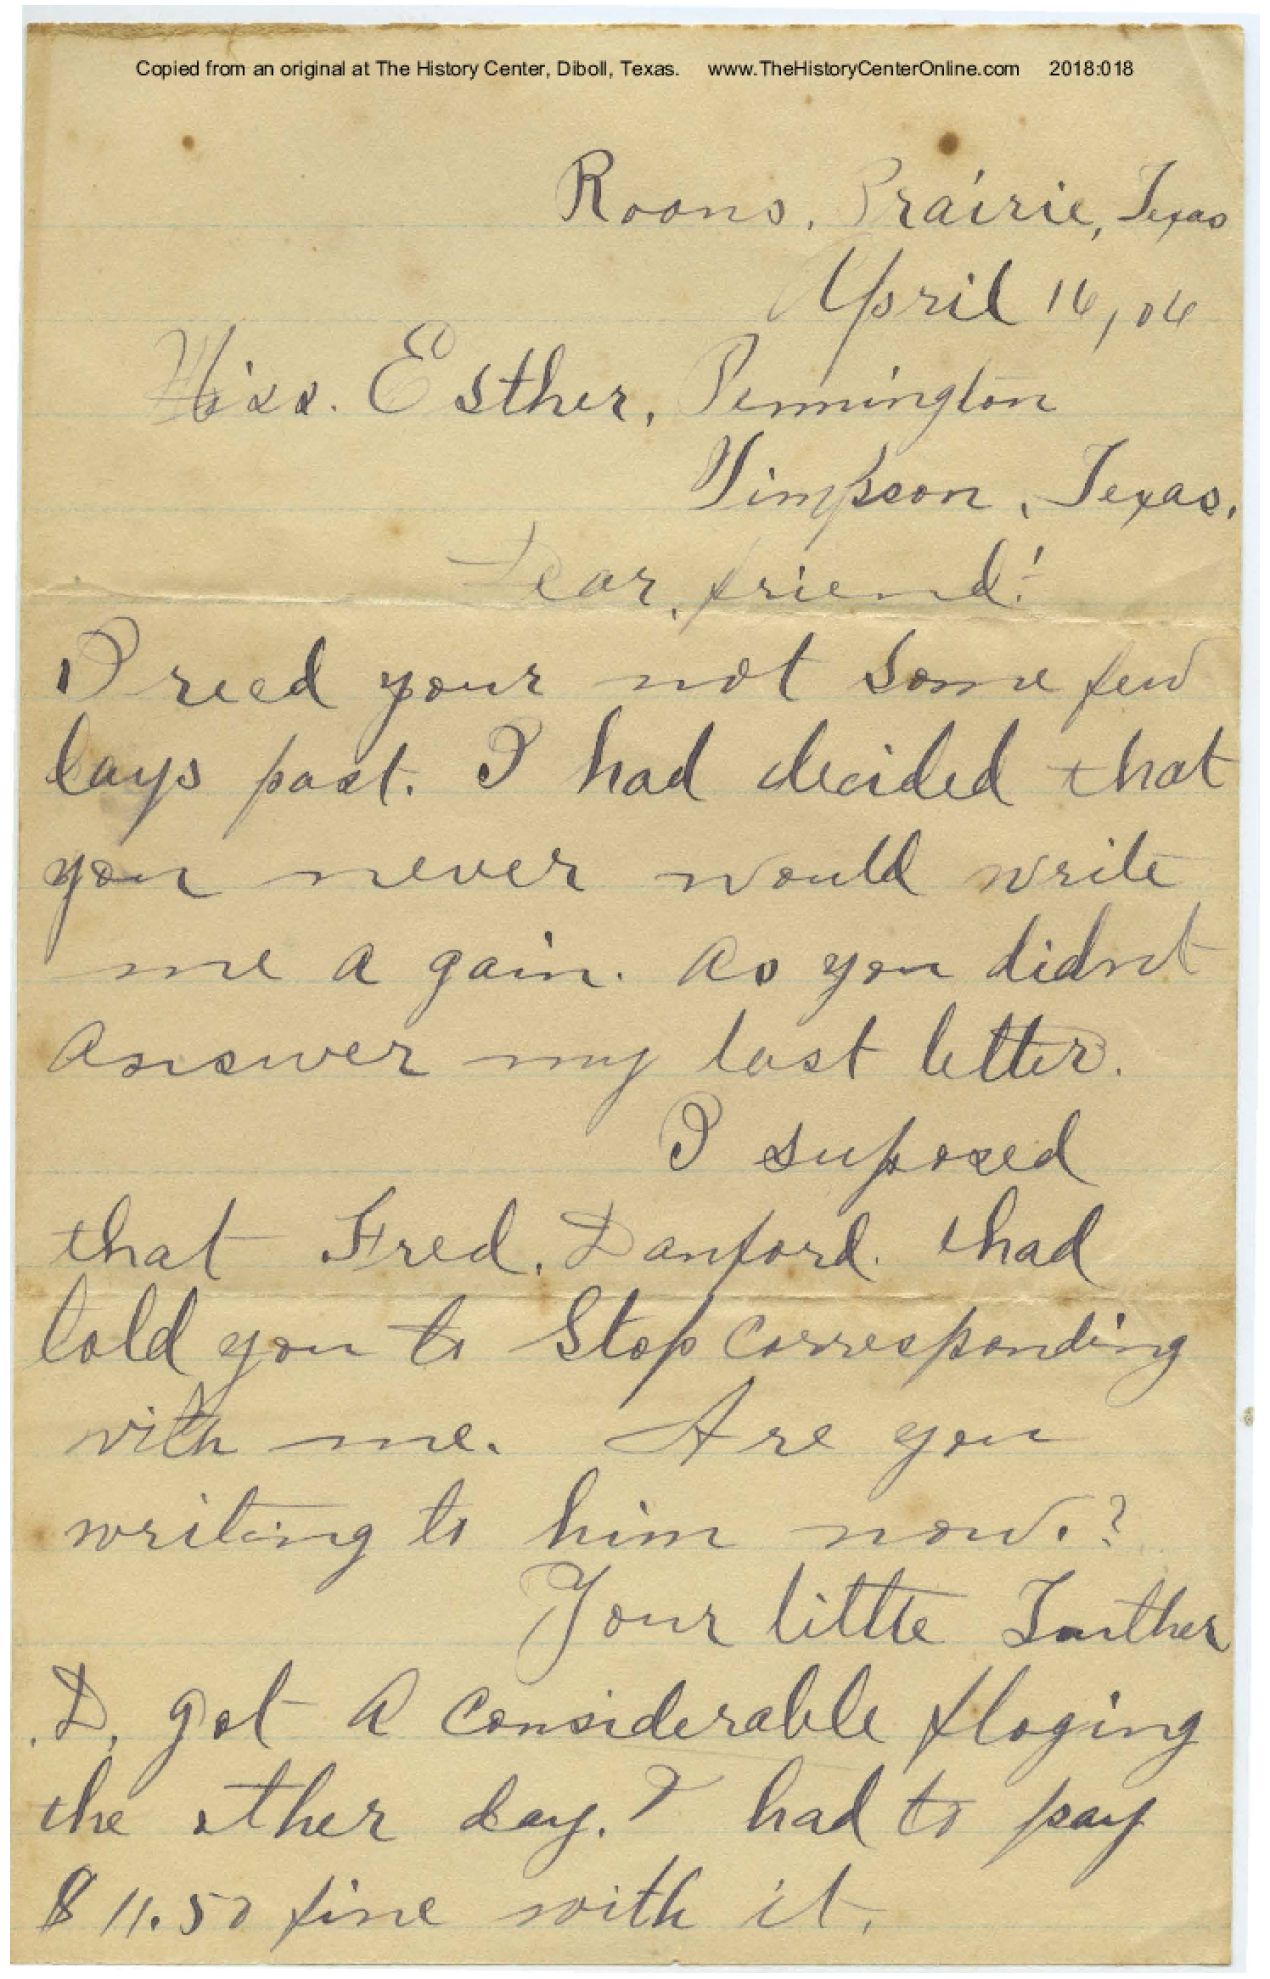 Copied from an original at The History Center, Diboll, Texas. www.TheHistoryCenterOnline.com 2018:018
Roans, Prairie, Texas
April 16, 06
Miss. Esther, Pennington
Timpson, Texas.
Dear, friend!
I recd your not some few
days past. I had decided that
you never would write
me a gain. as you didnt
answer my last letter.
I suposed
that Fred. Danford. had
told you to Stop corresponding
with me. Are you
writing to him now.?
Your little Luther
D. got a considerable floging
the other day. I had to pay
$11.50 fine with it.